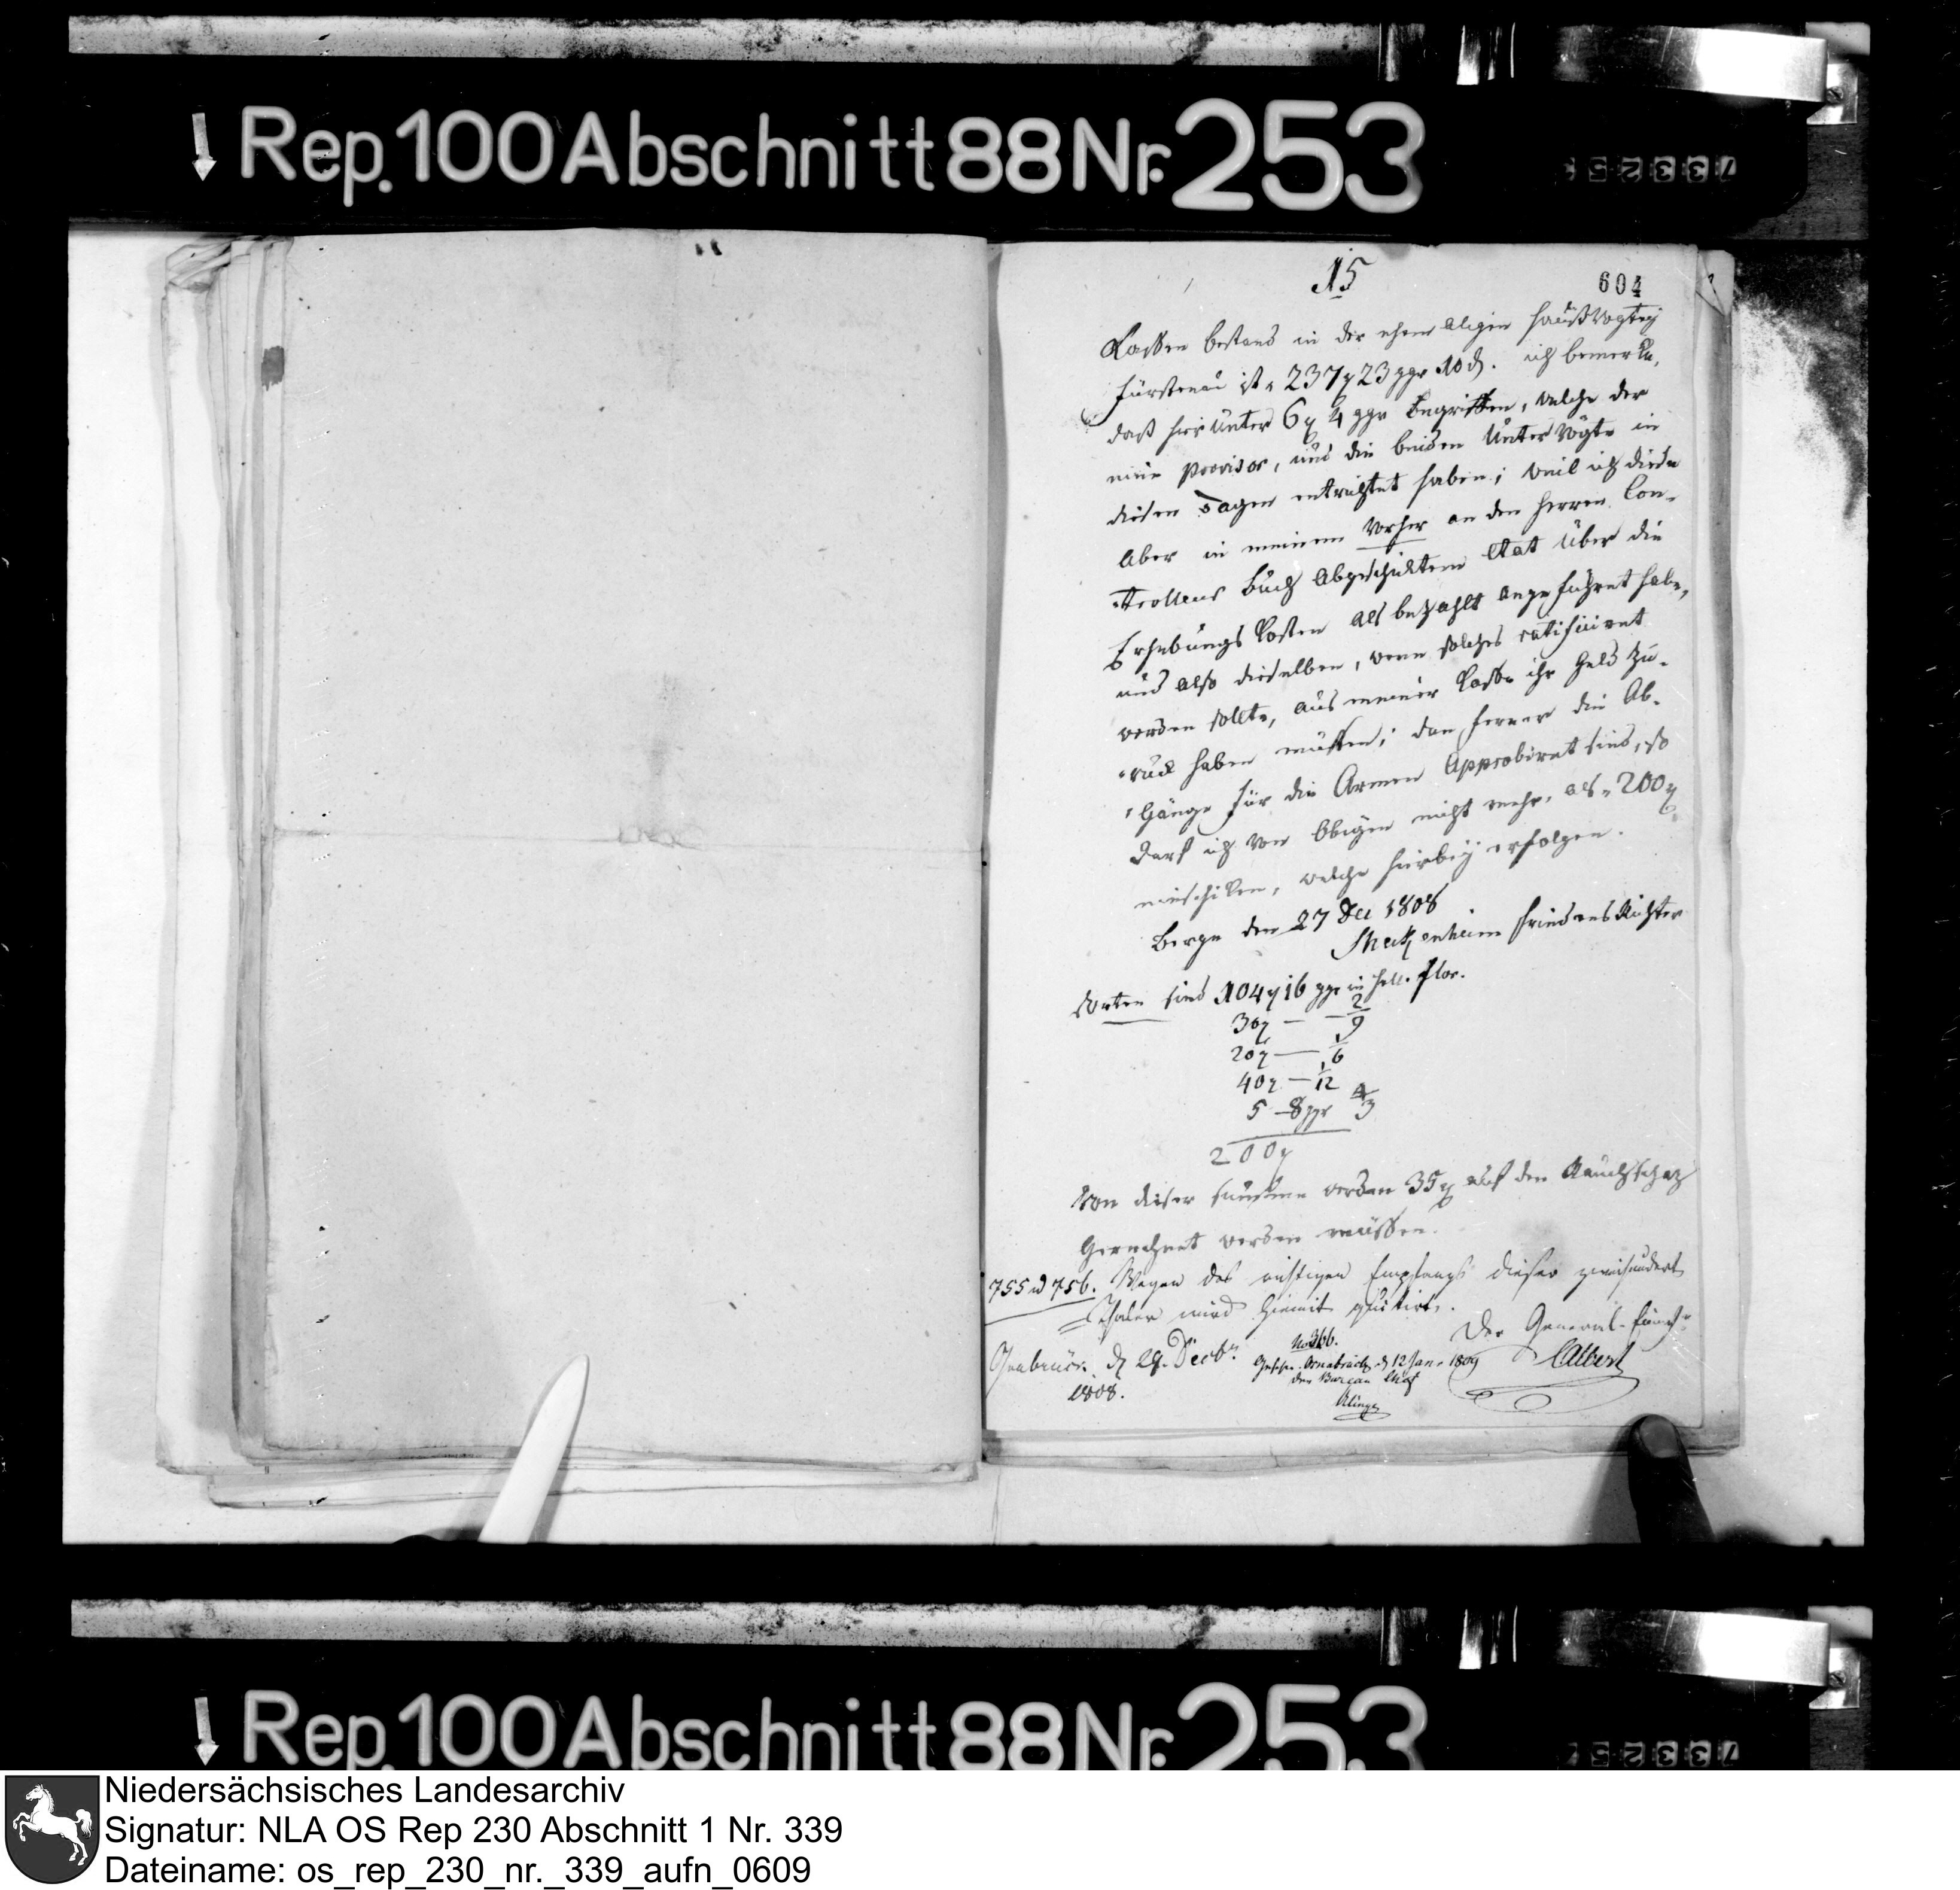 Rep. 100 Abschnitt 88 Nr. 253
15
604
Cassen bestand in der ehemaligen HaußVogtey
Fürstenau ist = 237 rt 23 ggr 10 d. ich bemerke,
daß hier unter 6 rt 4 ggr begriffen, welche der
Provisor, und die beiden Unter Vögte in
diesen Tagen entrichtet haben; weil ich diese
aber in meinem vorher an den Herren Con-
trolleur Buch abgeschickten Etat über die
Erhebungs Kosten als bezahlt angeführet habe,
und also dieselben, wenn solches ratificiret
werden sollte, aus meiner Casse ihr Geld zu-
rück haben müssen; da ferner die Ab-
gänge für die Armen approbiret sind, so
darf ich von obigen nicht mehr, als = 200 rt
einschicken, welche hierbey erfolgen.
Berge den 27 Dec 1808
FriedensRichter
Sorten sind 104 rt 16 ggr in holl. Flor.
30 rt — — 2/3
20 rt — 1/6
40 rt — 1/12
5 — 8 ggr
200 rt
Von dieser Summe werden 35 rt auf den Rauchschatz
gerechnet werden müssen.
755 u 756. Wegen des richtigen Empfangs dieser zweihundert
Thaler wird hiemit quitirt.
Der General-Einn.
Osnabrück d 29. Decbr
1808.
No 366.
Gesehn. Osnabrück d 12 Jan. 1809
Der Bureau Chef
Albert
Rep. 100 Abschnitt 88 Nr. 253
Niedersächsisches Landesarchiv
Signatur: NLA OS Rep 230 Abschnitt 1 Nr. 339
Dateiname: os_rep_230_nr._339_aufn_0609